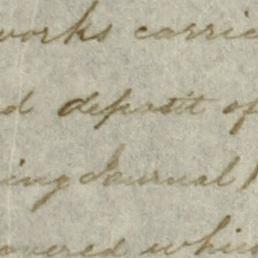 works carrie
d deposit of
ing Journal
overed which